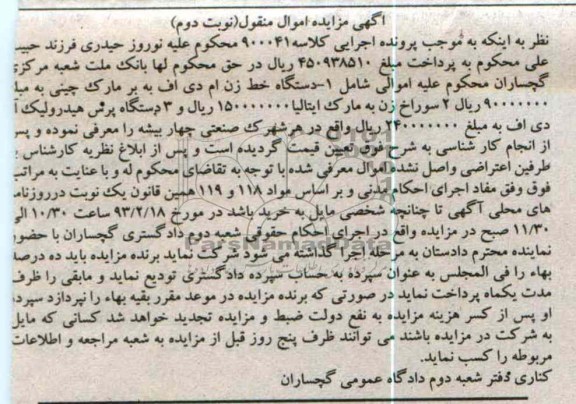 آگهی مزایده اموال منقول(نوبت دوم)
نظر به اینکه به موجب پرونده اجرایی کلاسه۹۰۰۰۴۱ محکوم علیه نوروز حیدری فرزند
علی محکوم به پرداخت مبلغ ۴۵۰۹۳۸۵۱۰ ریال در حق محکوم لها بانک ملت شعبه مرکزی
گچساران محکوم علیه اموالی شامل ۱-دستگاه خط زن ام دی اف به بر مارک چینی به
۹۰۰۰۰۰۰۰ ریال ۲ سوراخ زن به مارک ایتالیا۱۵۰۰۰۰۰۰۰ ریال و ۳دستگاه پرس هیدرولیک
دی اف به مبلغ ۲۴۰۰۰۰۰۰۰ ریال واقع در هرشهرک صنعتی چهار بیشه را معرفی نموده و پس
از انجام کار شناسی به شرح فوق تعیین قیمت گردیده است و پس از ابلاغ نظریه کارشناس
طرفین اعتراضی واصل نشده اموال معرفی شده با توجه به تقاضای محکوم له و با عنایت به
فوق وفق مفاد اجرای احکام مدنی و بر اساس مواد ۱۱۸ و ۱۱۹ همین قانون یک نوبت درروزنامه
های محلی آگهی تا چنانچه شخصی مایل به خرید باشد در مورخ ۹۳/۲/۱۸ ساعت ۱۰/۳۰ الی
۱۱/۳۰ صبح در مزایده واقع در اجرای احکام حقوقی شعبه دوم دادگستری گچساران با حضور
نماینده محترم دادستان به مرحله اجرا گذاشته می شود شرکت نماید برنده مزایده باید ده درصد
بهاء را فی المجلس به عنوان سپرده به حساب سپرده دادگستری تودیع نماید و مابقی را ظرف
مدت یکماه پرداخت نماید در صورتی که برنده مزایده در موعد مقرر بقیه بهاء را نپردازد سپرده
او پس از کسر هزینه مزایده به نفع دولت ضبط و مزایده تجدید خواهد شد کسانی که مایل
به شرکت در مزایده باشند می توانند ظرف پنج روز قبل از مزایده به شعبه مراجعه و اطلاعات
مربوطه را کسب نماید.
کناری دفتر شعبه دوم دادگاه عمومی گچساران
ParsNamadData